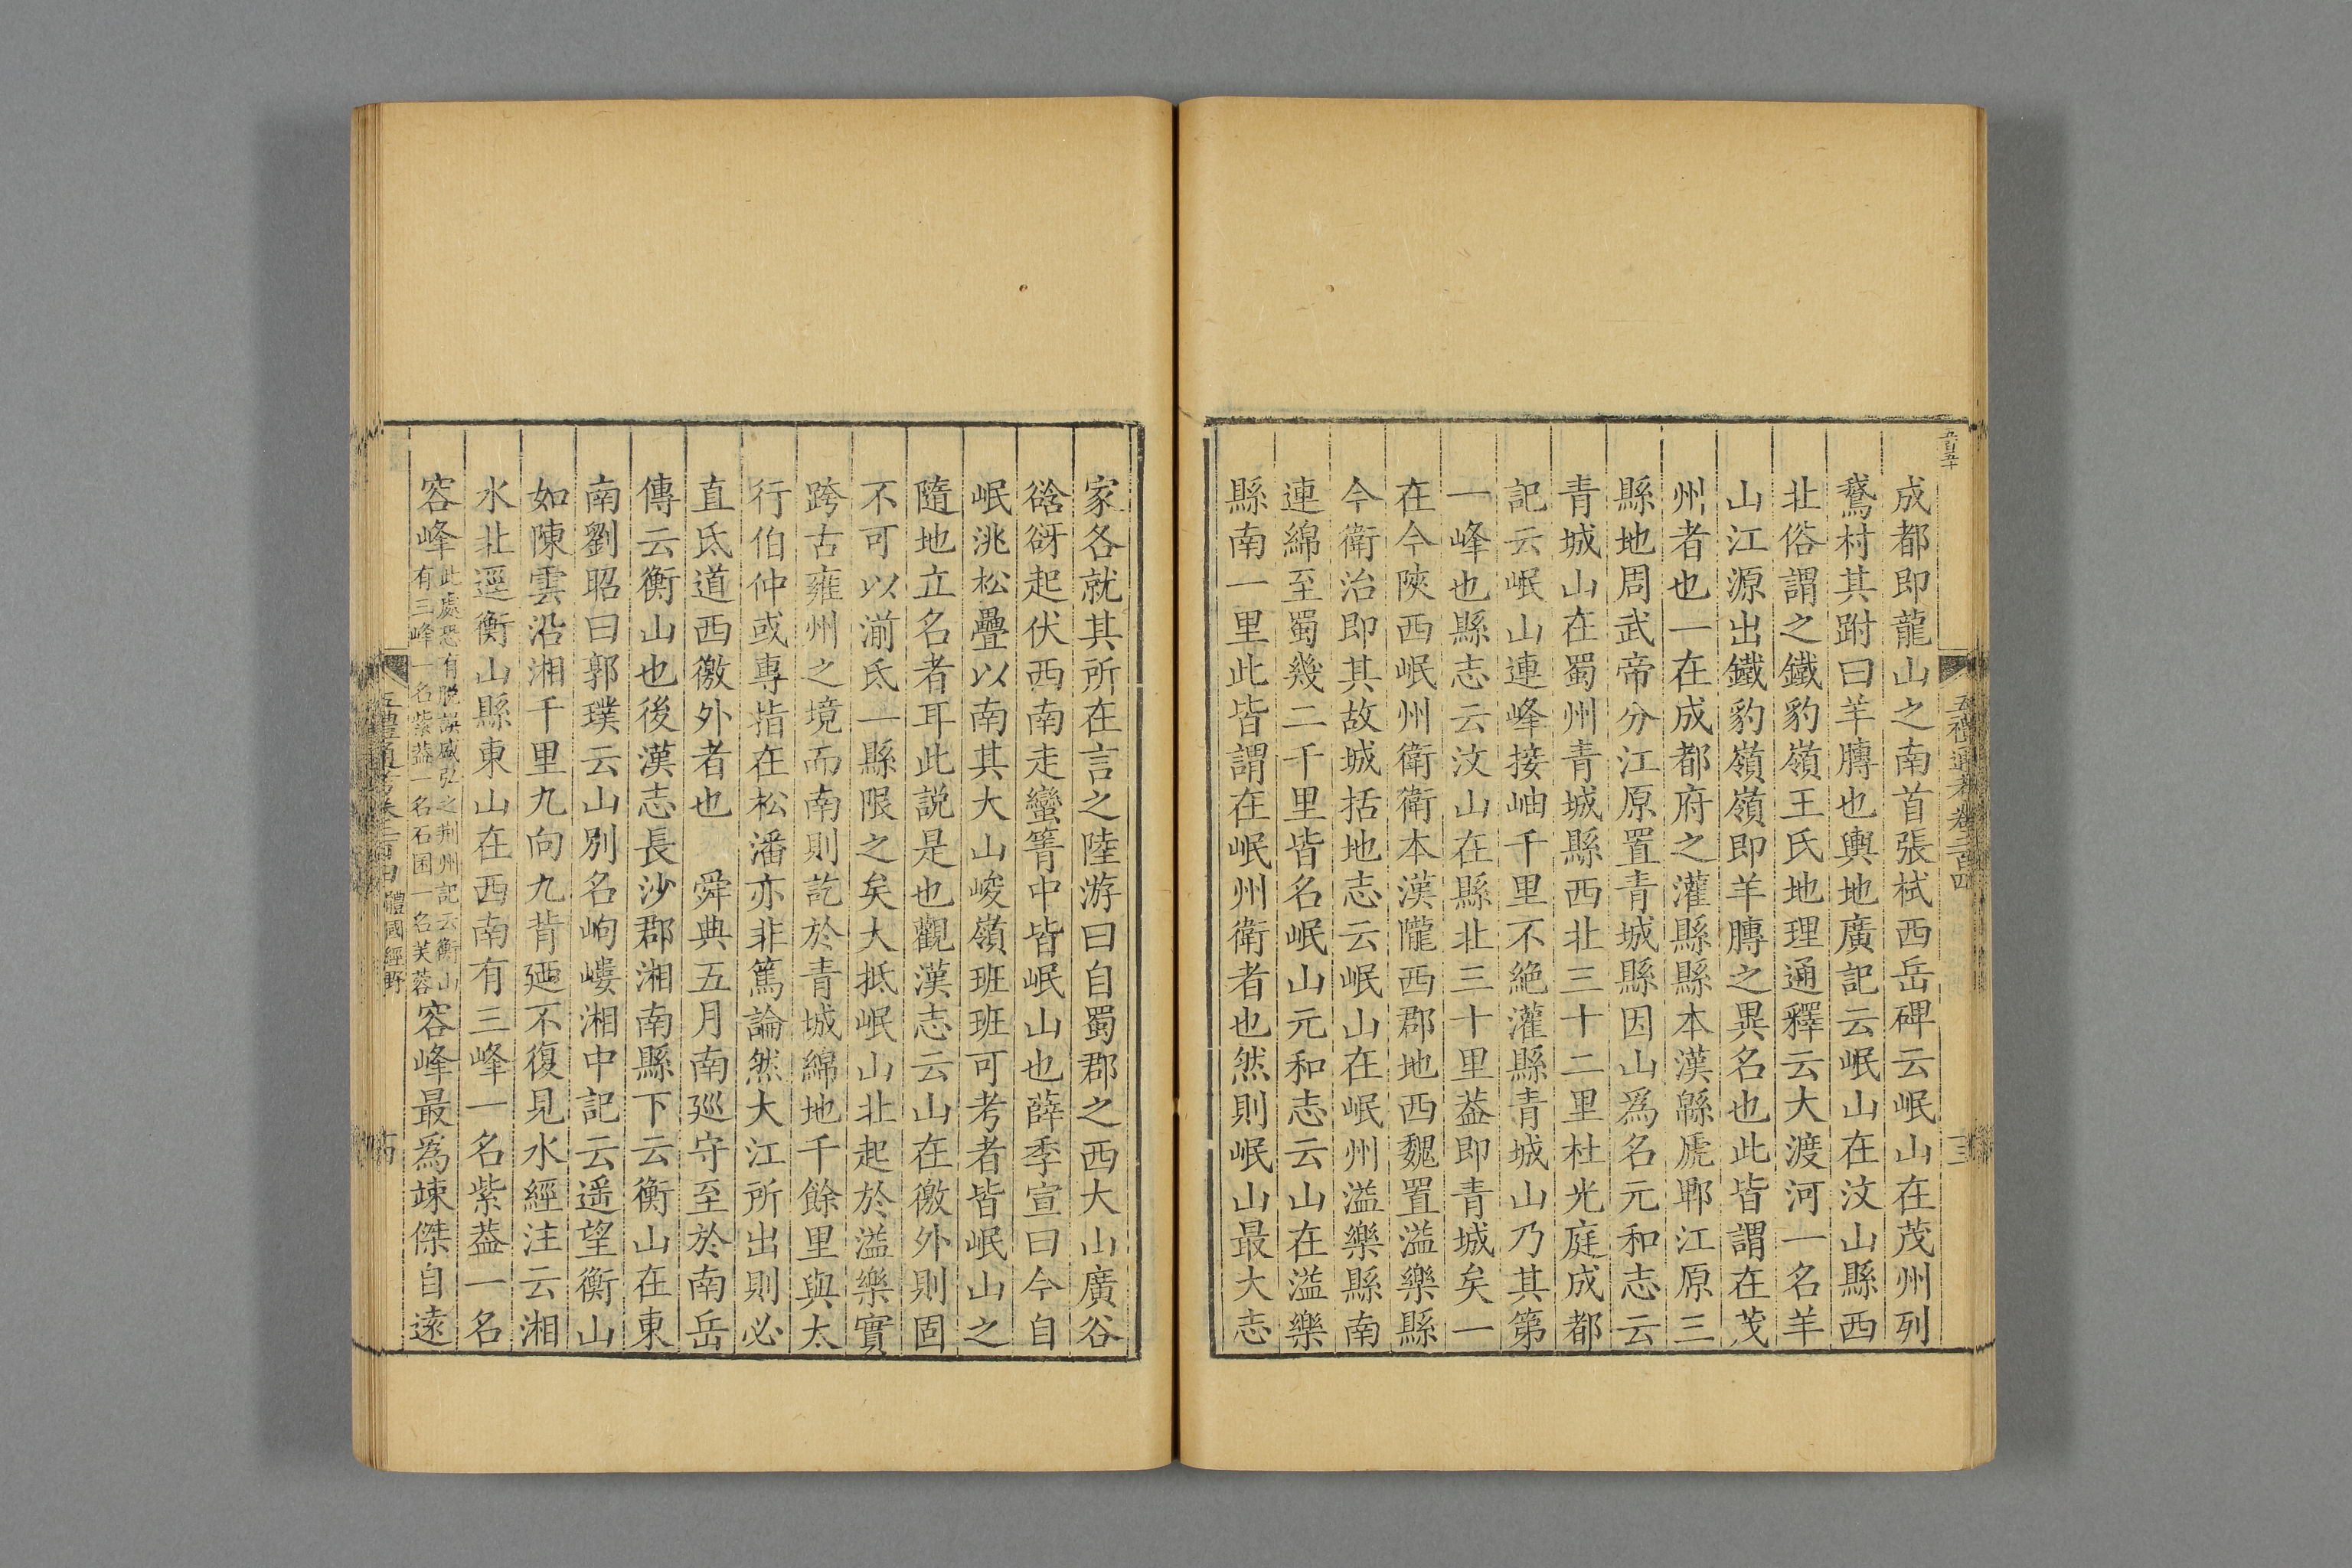 五百五十
五禮通考卷二百四
三
成都即龍山之南首張栻西岳碑云岷山在茂州列
鵞村其跗曰羊膊也輿地廣記云岷山在汶山縣西
北俗謂之鐵豹嶺王氏地理通釋云大渡河一名羊
山江源出鐵豹嶺嶺即羊膊之異名也此皆謂在茂
州者也一在成都府之灌縣縣本漢緜虒郫江原三
縣地周武帝分江原置青城縣因山爲名元和志云
青城山在蜀州青城縣西北三十二里杜光庭成都
記云岷山連峰接岫千里不絶灌縣青城山乃其第
一峰也縣志云汶山在縣北三十里葢即青城矣一
在今陝西岷州衛衛本漢隴西郡地西魏置溢樂縣
今衛治即其故城括地志云岷山在岷州溢樂縣南
連綿至蜀幾二千里皆名岷山元和志云山在溢樂
縣南一里此皆謂在岷州衛者也然則岷山最大志
家各就其所在言之陸游曰自蜀郡之西大山廣谷
谽谺起伏西南走蠻箐中皆岷山也薛季宣曰今自
岷洮松疊以南其大山峻嶺班班可考者皆岷山之
隨地立名者耳此説是也觀漢志云山在徼外則固
不可以湔氐一縣限之矣大抵岷山北起於溢樂實
跨古雍州之境而南則訖於青城綿地千餘里與太
行伯仲或專指在松潘亦非篤論然大江所出則必
直氐道西徼外者也　舜典五月南廵守至於南岳
傳云衡山也後漢志長沙郡湘南縣下云衡山在東
南劉昭曰郭璞云山别名岣嶁湘中記云遥望衡山
如陳雲沿湘千里九向九背廼不復見水經注云湘
水北逕衡山縣東山在西南有三峰一名紫葢一名
容峰此處恐有脱誤盛弘之荆州記云衡山
有三峰一名紫葢一名石囷一名芙蓉容峰最爲竦傑自遠
體國經野